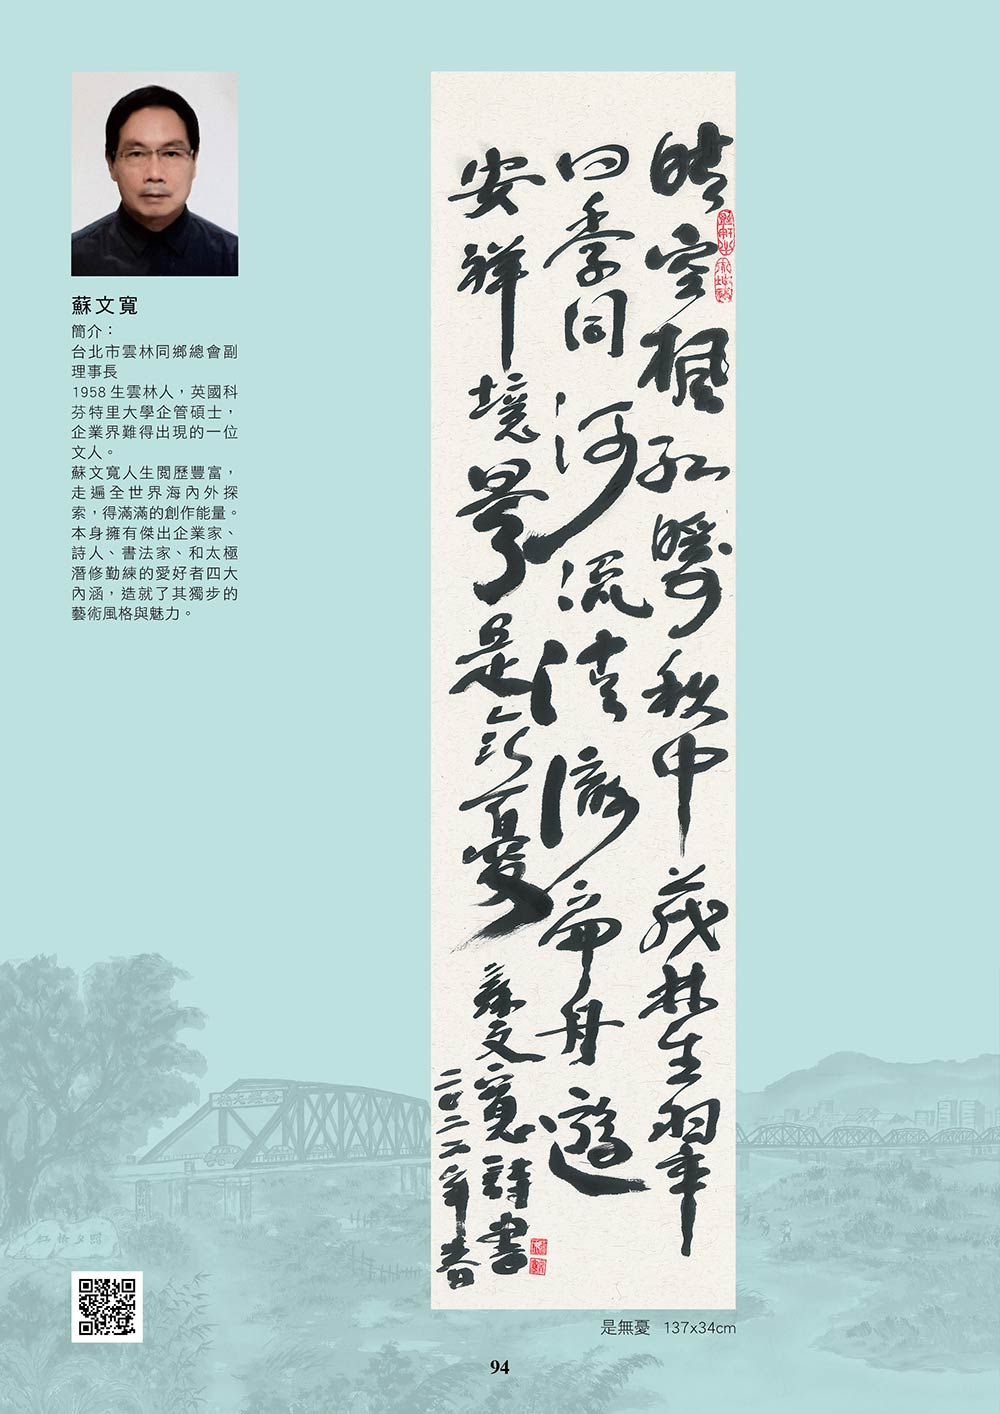 蘇文寬
簡介：
台北市雲林同鄉總會副
理事長
1958生雲林人，英國科
芬特里大學企管碩士，
企業界難得出現的一位
文人。
蘇文寬人生閱歷豐富，
走遍全世界海內外探
索，得滿滿的創作能量。
本身擁有傑出企業家、
詩人、書法家、和太極
潛修勤練的愛好者四大
內涵，造就了其獨步的
藝術風格與魅力。
晴空楓紅曯秋中茂林生翠
四季同河流清澈帝舟遊
安祥境界是無憂
蘇文寬詩書
二〇二二年春
是無憂 137x34cm
94